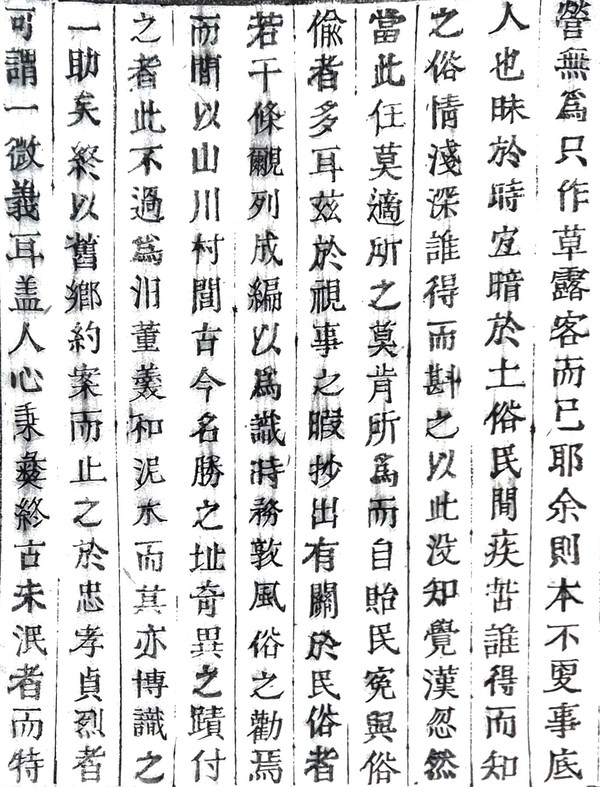 營無爲只作草露客而已耶余則本不更事底
人也昧於時宜暗於土俗民間疾苦誰得而知
之俗情淺深誰得而斟之以此没知覺漢忽然
當此任莫適所之莫肯所爲而自貽民寃與俗
偸者多耳玆於視事之暇抄出有關於民俗者
若干條觀列成編以爲識時務敦風俗之勸焉
而間以山川村閭古今名勝之址奇異之蹟付
之者此不過爲汨董羹和泥水而其亦博識之
一助矣終以舊鄕約案而止之於忠孝貞烈者
可謂一微義耳盖人心秉彜終古未泯者而特